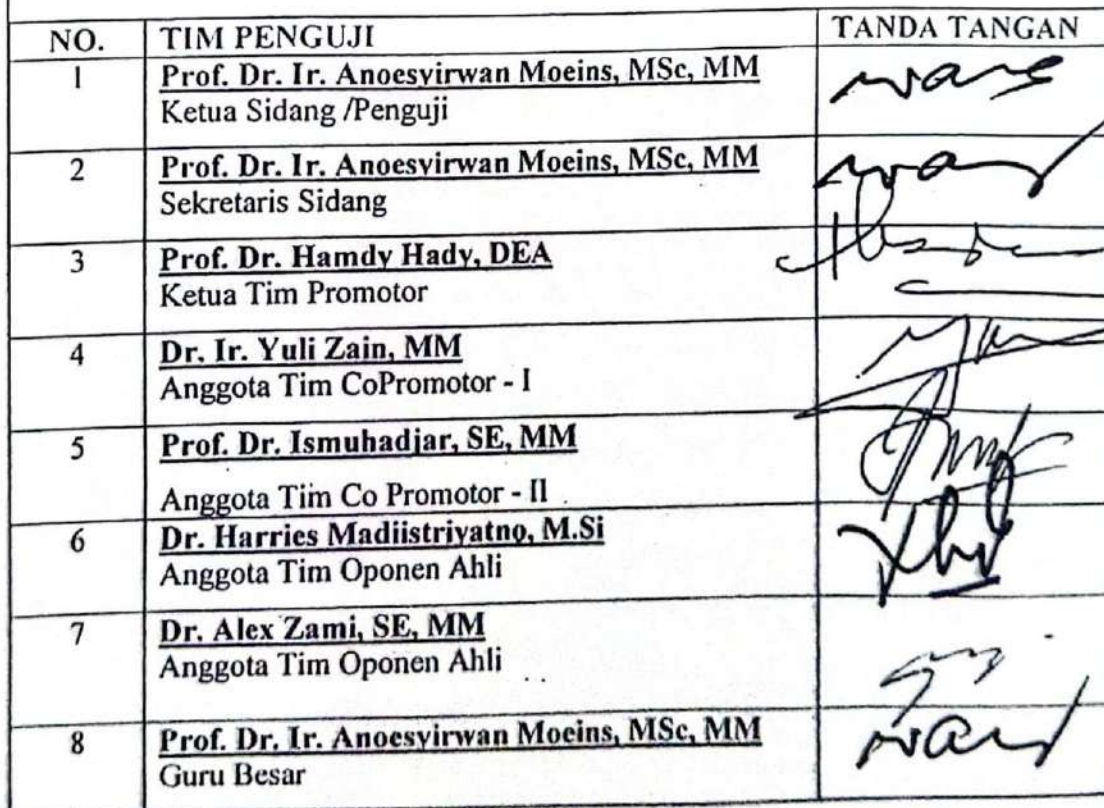 NO. TIM PENGUJI TANDA TANGAN
1 Prof. Dr. Ir. Anoesyirwan Moeins, MSc, MM
Ketua Sidang /Penguji
2 Prof. Dr. Ir. Anoesyirwan Moeins, MSc, MM
Sekretaris Sidang
3 Prof. Dr. Hamdy Hady, DEA
Ketua Tim Promotor
4 Dr. Ir. Yuli Zain, MM
Anggota Tim CoPromotor - I
5 Prof. Dr. Ismuhadjar, SE, MM
Anggota Tim Co Promotor - II
6 Dr. Harries Madiistriyatno, M.Si
Anggota Tim Oponen Ahli
7 Dr. Alex Zami, SE, MM
Anggota Tim Oponen Ahli
8 Prof. Dr. Ir. Anoesyirwan Moeins, MSc, MM
Guru Besar